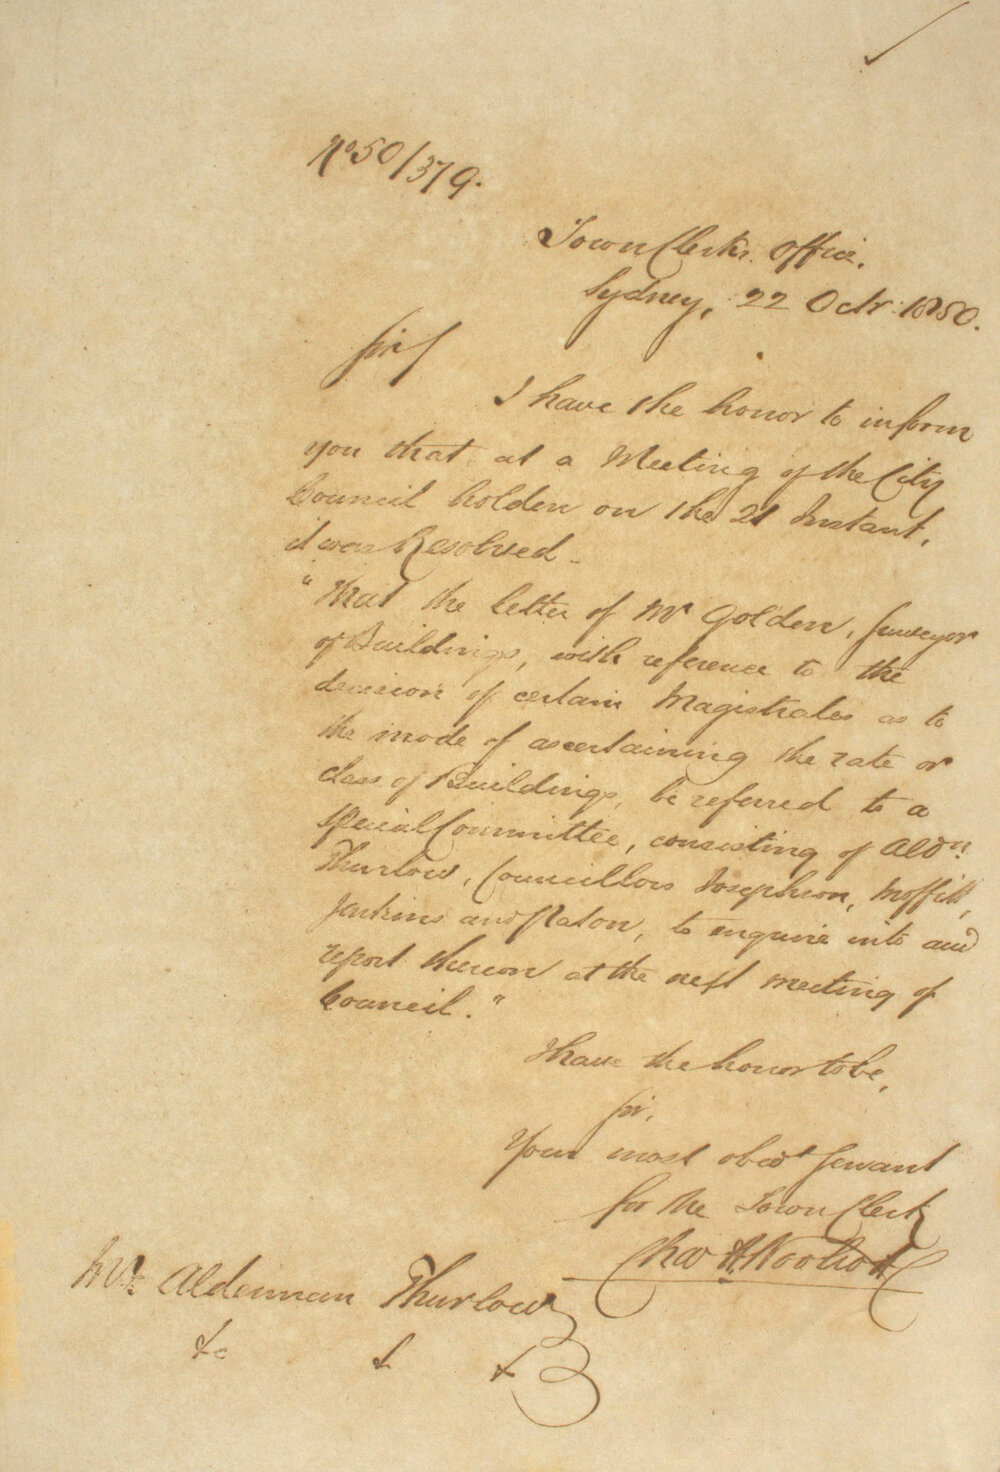 No 50/379.
Town Clerks Office.
Sydney, 22 Octr. 1850.
Sir/
I have the honor to inform
you that at a Meeting of the City
Council holden on the 21 Instant,
it was Resolved -
"That the letter of Mr Golden, Surveyor
of Buildings, with reference to the
decision of certain Magistrates as to
the mode of ascertaining the rate or
class of Buildings, be referred to a
Special Committee, consisting of Aldn.
Thurlow, Councillors Josephson, Moffitt,
Jenkins and Raton, to enquire into and
report thereon at the next meeting of
Council."
I have the honor to be,
Sir,
Your most obedt Servant
for the Town Clerk
Chas H Woolcott
Mr Alderman Thurlow
&c & &